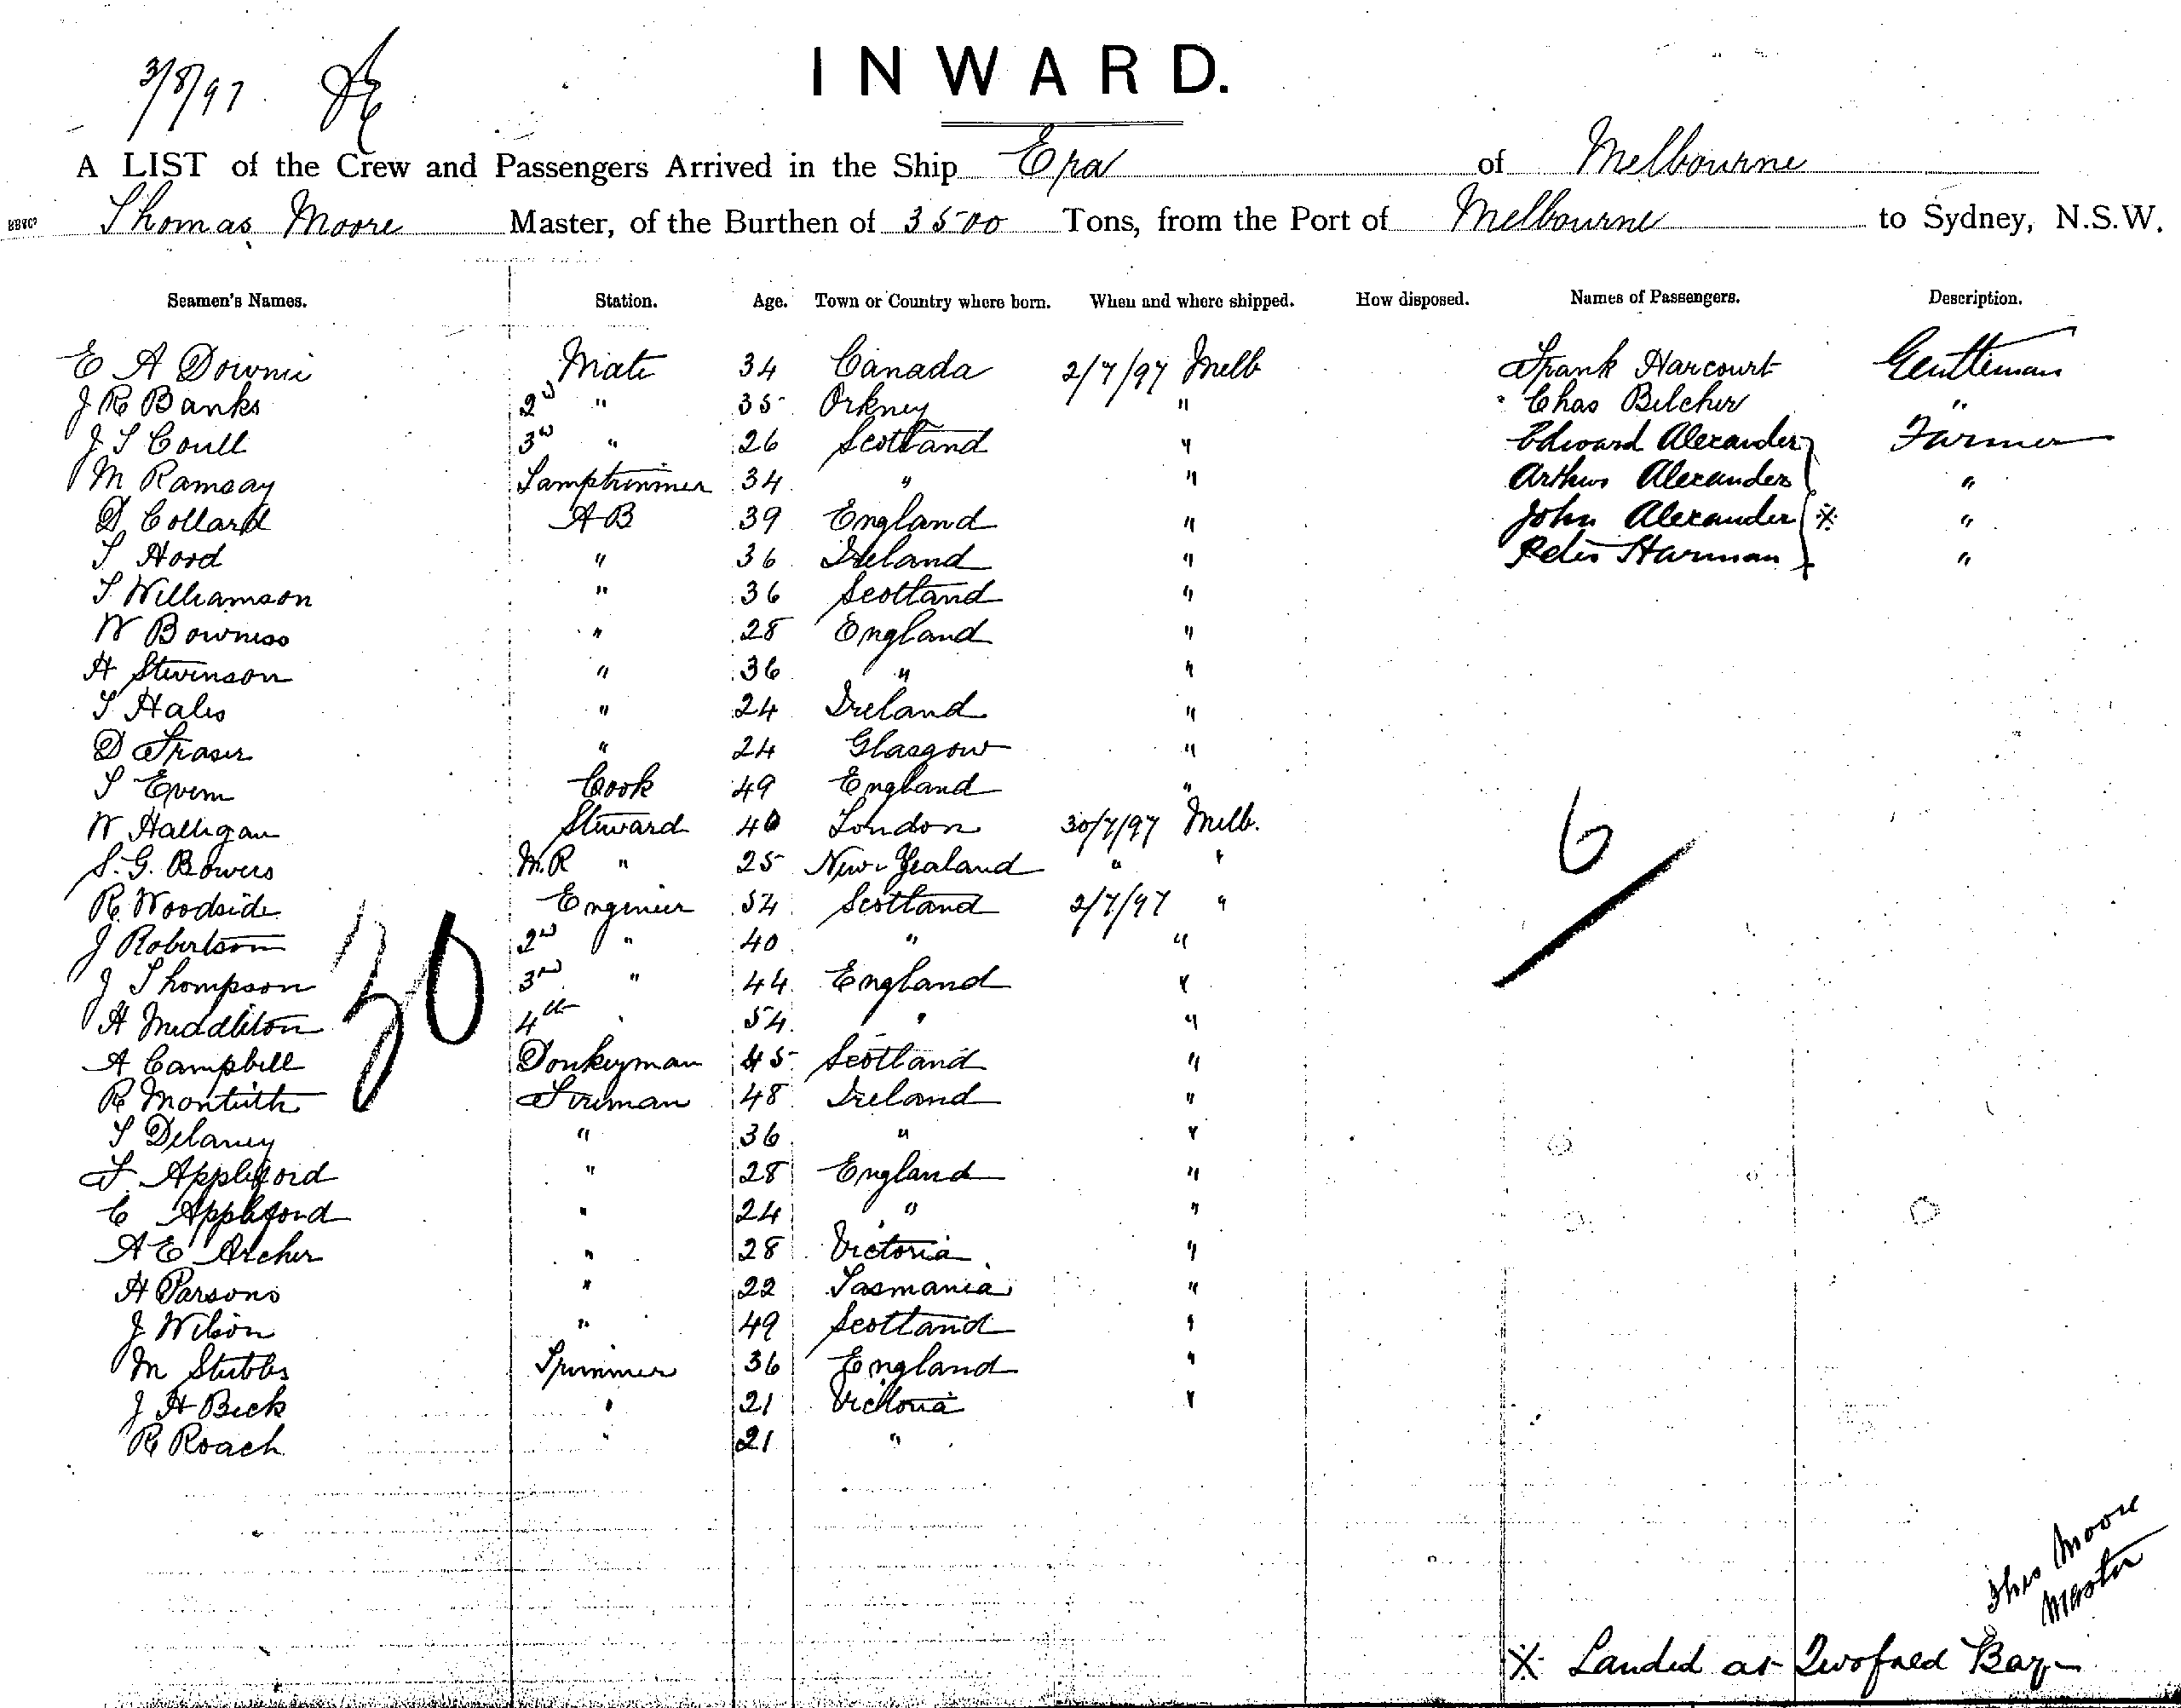 3/8/97
INWARD.
A LIST of the Crew and Passengers Arrived in the Ship Era of Melbourne
Thomas Moore Master, of the Burthen of 3500 Tons, from the Port of Melbourne to Sydney, N.S.W.
Seamen's Names. Station. Age. Town or Country where born. When and where shipped. How disposed. Names of Passengers. Description.
E A Downie Mate 34 Canada 2/7/97 Melb Frank Harcourt Gentleman
J R Banks 2nd " 35 Orkney " Chas Belcher "
J S Coull 3rd " 26 Scotland " Edward Alexander Farmer
M Ramsay Lamptrimmer 34 " " Arthur Alexander "
D. Collard AB 39 England " John Alexander ※ "
T Hood " 36 Ireland " Peter Harman "
T Williamson " 36 Scotland "
W Bowness " 28 England "
H Stevenson " 36 " "
T Hales " 24 Ireland "
D Fraser " 24 Glasgow "
T Cook 49 England "
W Halligan Steward 40 London 30/7/97 Melb.
S. G. Bowers M.R " 25 New Zealand " "
R Woodside Engineer 54 Scotland 2/7/97 "
J Robertson 2nd " 40 " "
J Thompson 3rd " 44 England "
H Middleton 4th " 54 " "
A Campbell Donkeyman 45 Scotland "
R Montieth Fireman 48 Ireland "
T Delaney " 36 " "
F. Appleford " 28 England "
C Appleford " 24 " "
A E Archer " 28 Victoria "
H Parsons " 22 Tasmania "
J Wilson " 49 Scotland "
M Stubbs Trimmer 36 England "
J H Beck " 21 Victoria "
R Roach " 21 "
30
6
Thos Moore
Master
※ Landed at Twofold Bay